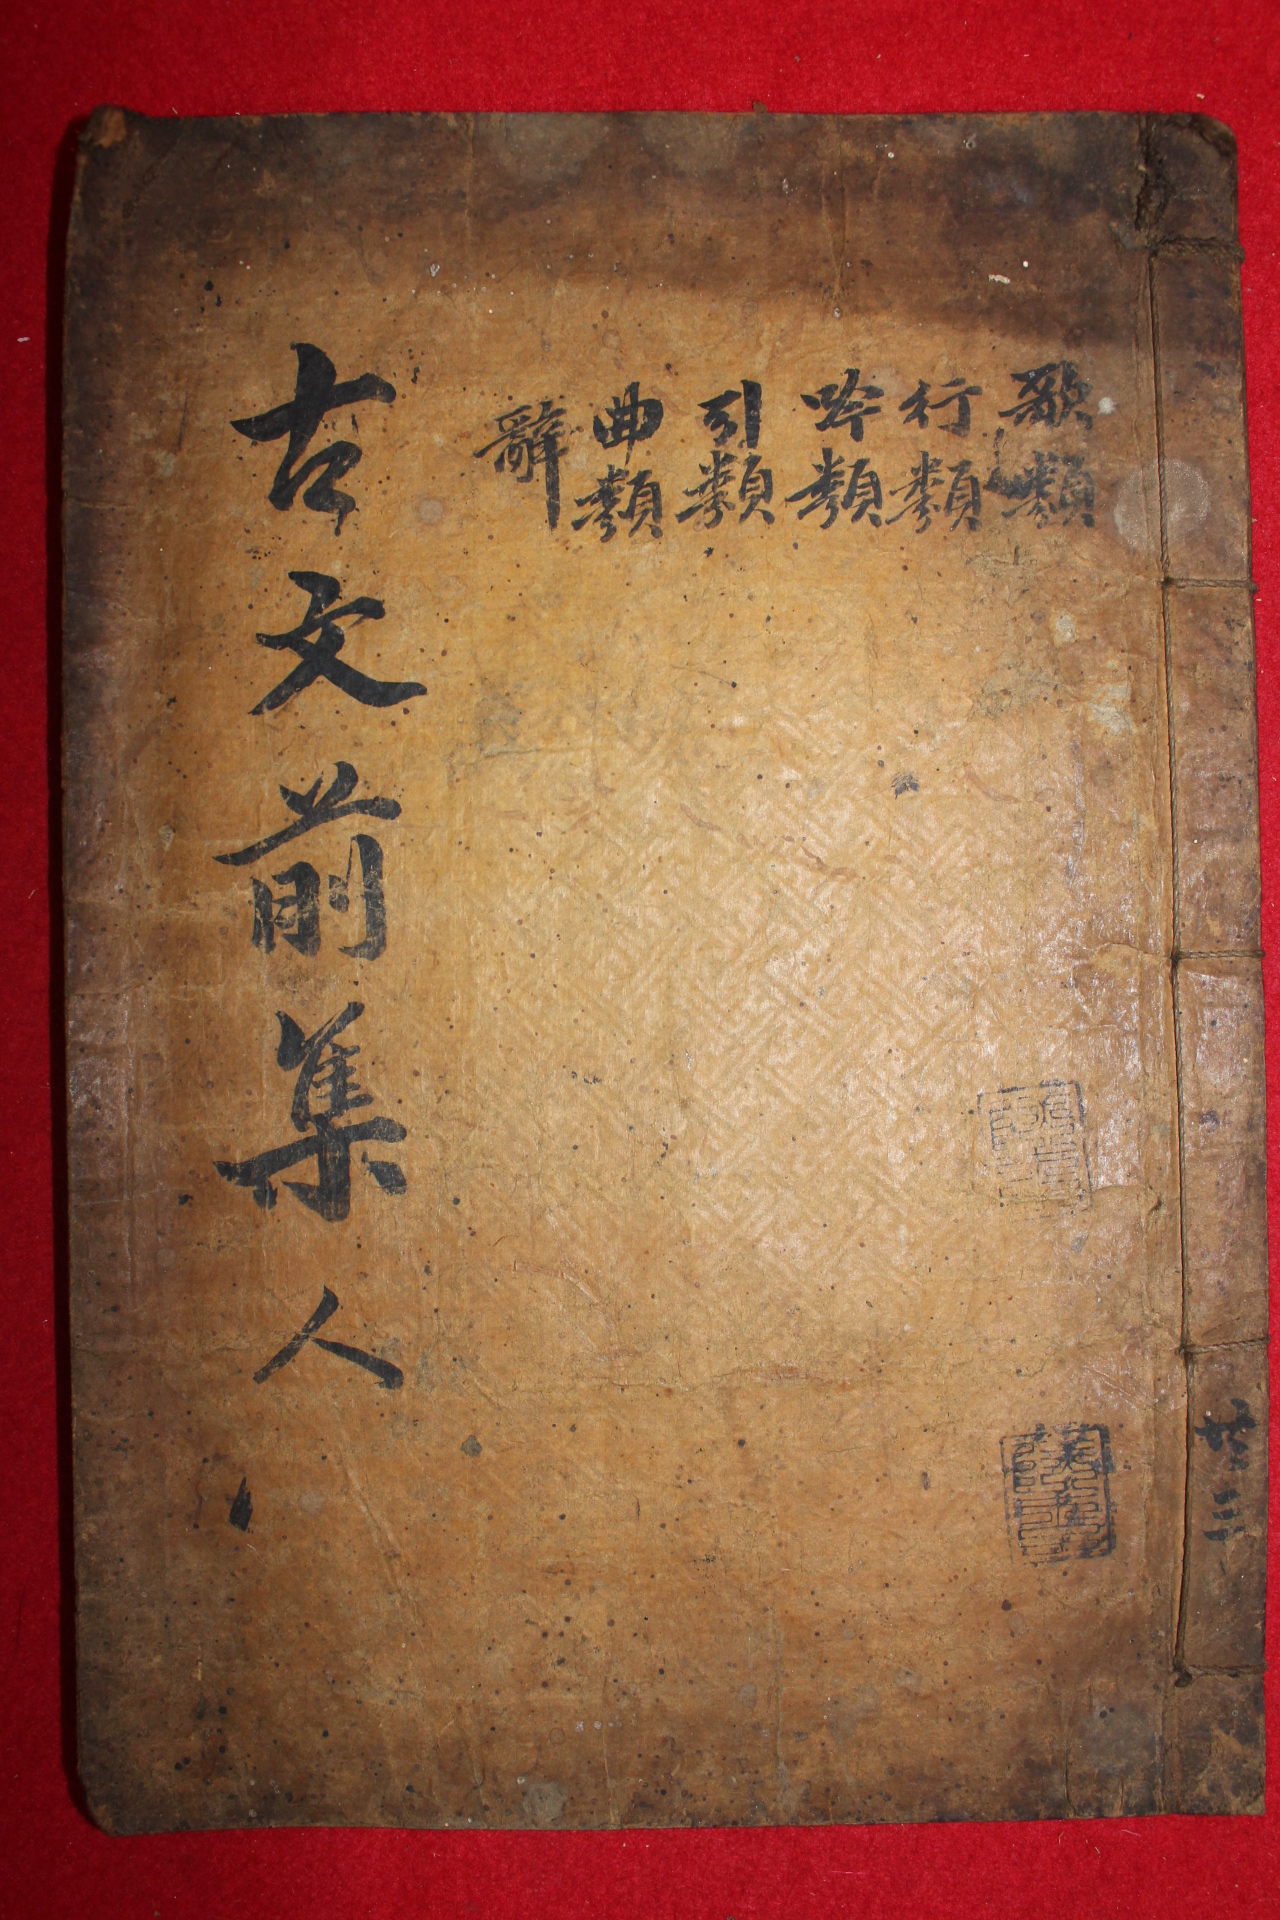 歌類
行類
吟類
引類
曲類
辭
古文前集 人